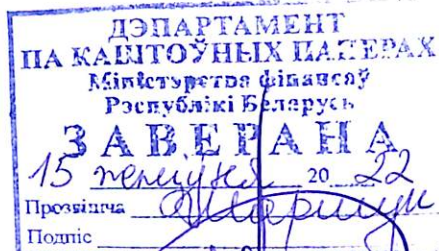 ДЭПАРТАМЕНТ
ПА КАШТОЎНЫХ ПАПЕРАХ
Міністэрства фінансаў
Рэспублікі Беларусь
ЗАВЕРАНА
15 20 22
Прозвішча
Подпіс